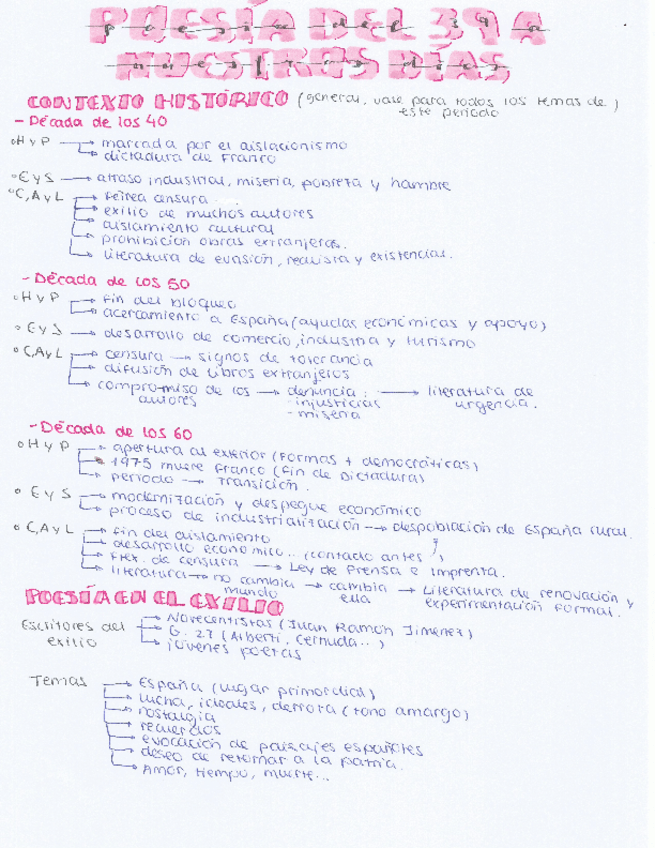 POESÍA DEL 39 A
NUESTROS DÍAS
CONTEXTO HISTÓRICO (general, vale para todos los temas de)
este periodo
- Década de los 40
• H y P → marcada por el aislacionismo
→ dictadura de Franco
• E y S → atraso industrial, miseria, pobreza y hambre
• C, A y L → férrea censura
→ exilio de muchos autores
→ aislamiento cultural
→ prohibición obras extranjeras.
→ literatura de evasión, realista y existencial.
- Década de los 50
• H y P → fin del bloqueo
→ acercamiento a España (ayudas económicas y apoyo)
• E y S → desarrollo de comercio, industria y turismo
• C, A y L → censura → signos de tolerancia
→ difusión de libros extranjeros
→ compromiso de los → denuncia: → literatura de
autores - injusticias urgencia.
- miseria
- Década de los 60
• H y P → apertura al exterior (formas + democráticas)
→ 1975 muere Franco (fin de Dictadura)
→ periodo → Transición.
• E y S → modernización y despegue económico
→ proceso de industrialización → despoblación de España rural.
• C, A y L → fin del aislamiento
→ desarrollo económico.. (contado antes)
→ flex. de censura → Ley de Prensa e Imprenta.
→ literatura → no cambia → cambia → Literatura de renovación y
mundo ella experimentación formal.
POESÍA EN EL EXILIO
Escritores del → Novecentistas (Juan Ramón Jiménez)
exilio → G. 27 (Alberti, Cernuda..)
→ jóvenes poetas
Temas → España (lugar primordial)
→ lucha, ideales, derrota (tono amargo)
→ nostalgia
→ recuerdos
→ evocación de paisajes españoles
→ deseo de retornar a la patria.
→ Amor, tiempo, muerte...